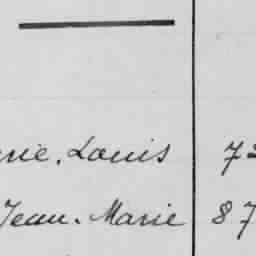 rie. Louis 72
Jean. Marie 87